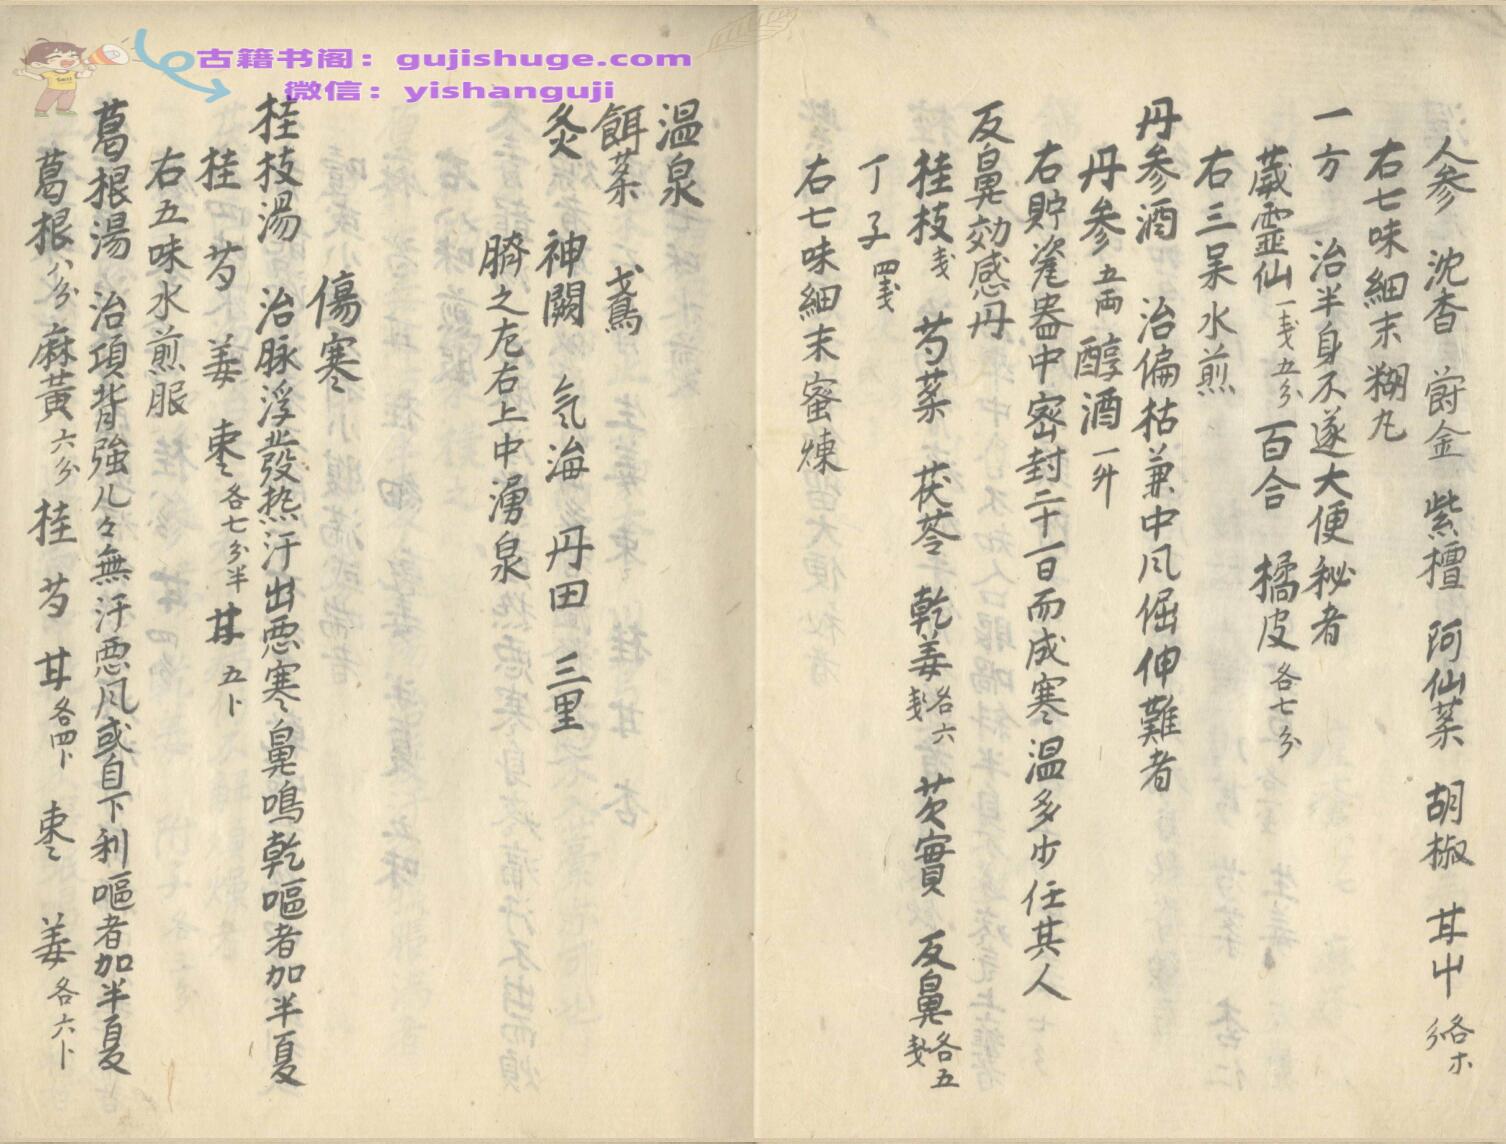 古籍书阁：gujishuge.com
微信：yishanguji
人参 沈香 欝金 紫檀 阿仙薬 胡椒 甘中 各等分
右七味細末糊丸
一方 治半身不遂大便秘者
葳霊仙一戔五分 百合 橘皮各七分
右三味水煎
丹参酒 治偏枯兼中风倔伸難者
丹参五両 醇酒一升
右貯瓷器中密封二十一日而成寒温多少任其人
反鼻効感丹
桂枝戔 芍薬 茯苓 乾姜各六戔 芡實 反鼻各五戔
丁子四戔
右七味細末蜜煉
温泉
餌薬 鳶
灸 神闕 気海 丹田 三里
臍之左右上中湧泉
傷寒
桂枝湯 治脉浮發热汗出悪寒鼻鳴乾嘔者加半夏
桂 芍 姜 枣各七分半 甘五卜
右五味水煎服
葛根湯 治項背強几々無汗悪风或自下利嘔者加半夏
葛根八分 麻黄六分 桂 芍 甘各四卜 枣 姜各六卜